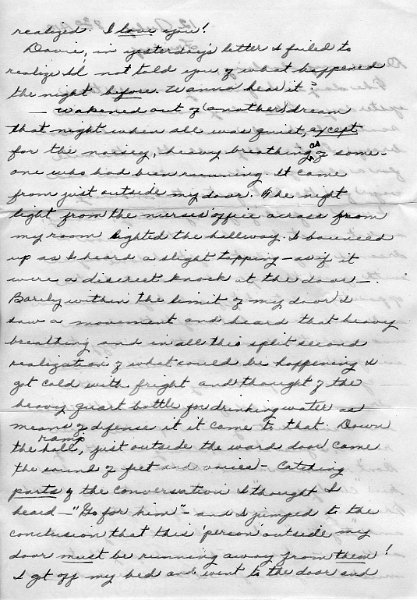 realized. I love you!
Davie, in yesterday's letter I failed to
realize I'd not told you of what happened
the night before. Wanna hear it?
— wakened out of another dream
that night when all was quiet, except
for the noisy, heavy breathing as of some-
one who had been running. It came
from just outside my door. The night
light from the nurses office across from
my room lighted the hallway. I bounced
up as I heard a slight tapping — as if it
were a discreet knock at the door —.
Barely within the limit of my door I
saw a movement and heard that heavy
breathing and in all this split second
realization of what could be happening I
got cold with fright and thought of the
heavy quart bottle for drinking water as
means of defense if it came to that. Down
the hall ramp, just outside the ward door came
the sound of feet and voices — Catching
parts of the conversation I thought I
heard — "Go for him" — and I jumped to the
conclusion that this person outside my
door must be running away from them!
I got off my bed and went to the door and